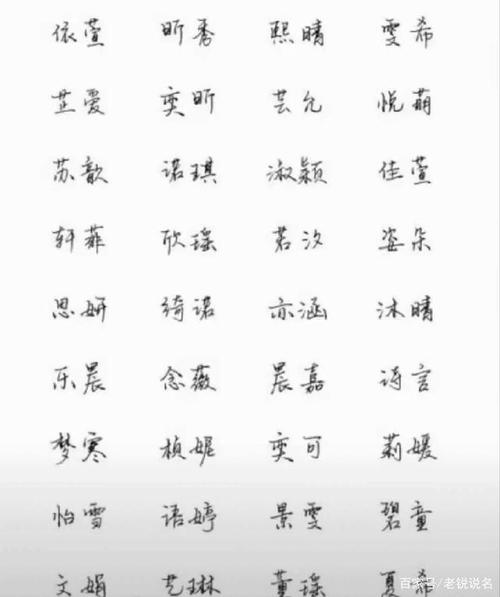 依萱 昕秀 熙晴 雯希
芷爱 奕昕 芸允 悦萌
苏歆 诺琪 淑颖 佳萱
轩菲 欣瑶 若汐 姿朵
思妍 绮诺 亦涵 沐晴
乐晨 念薇 晨嘉 诗言
梦寒 桢妮 奕可 莉媛
怡雪 语婷 景雯 碧童
文娟 艺琳 董瑶 夏希
百家号/老锐说名